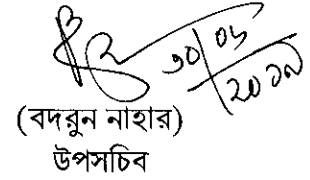 ৩০/০৬/২০১৯
(বদরুন নাহার)
উপসচিব